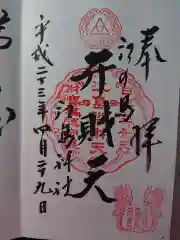 奉拝
江の島
弁財天
江島神社
平成二十三年四月二十九日